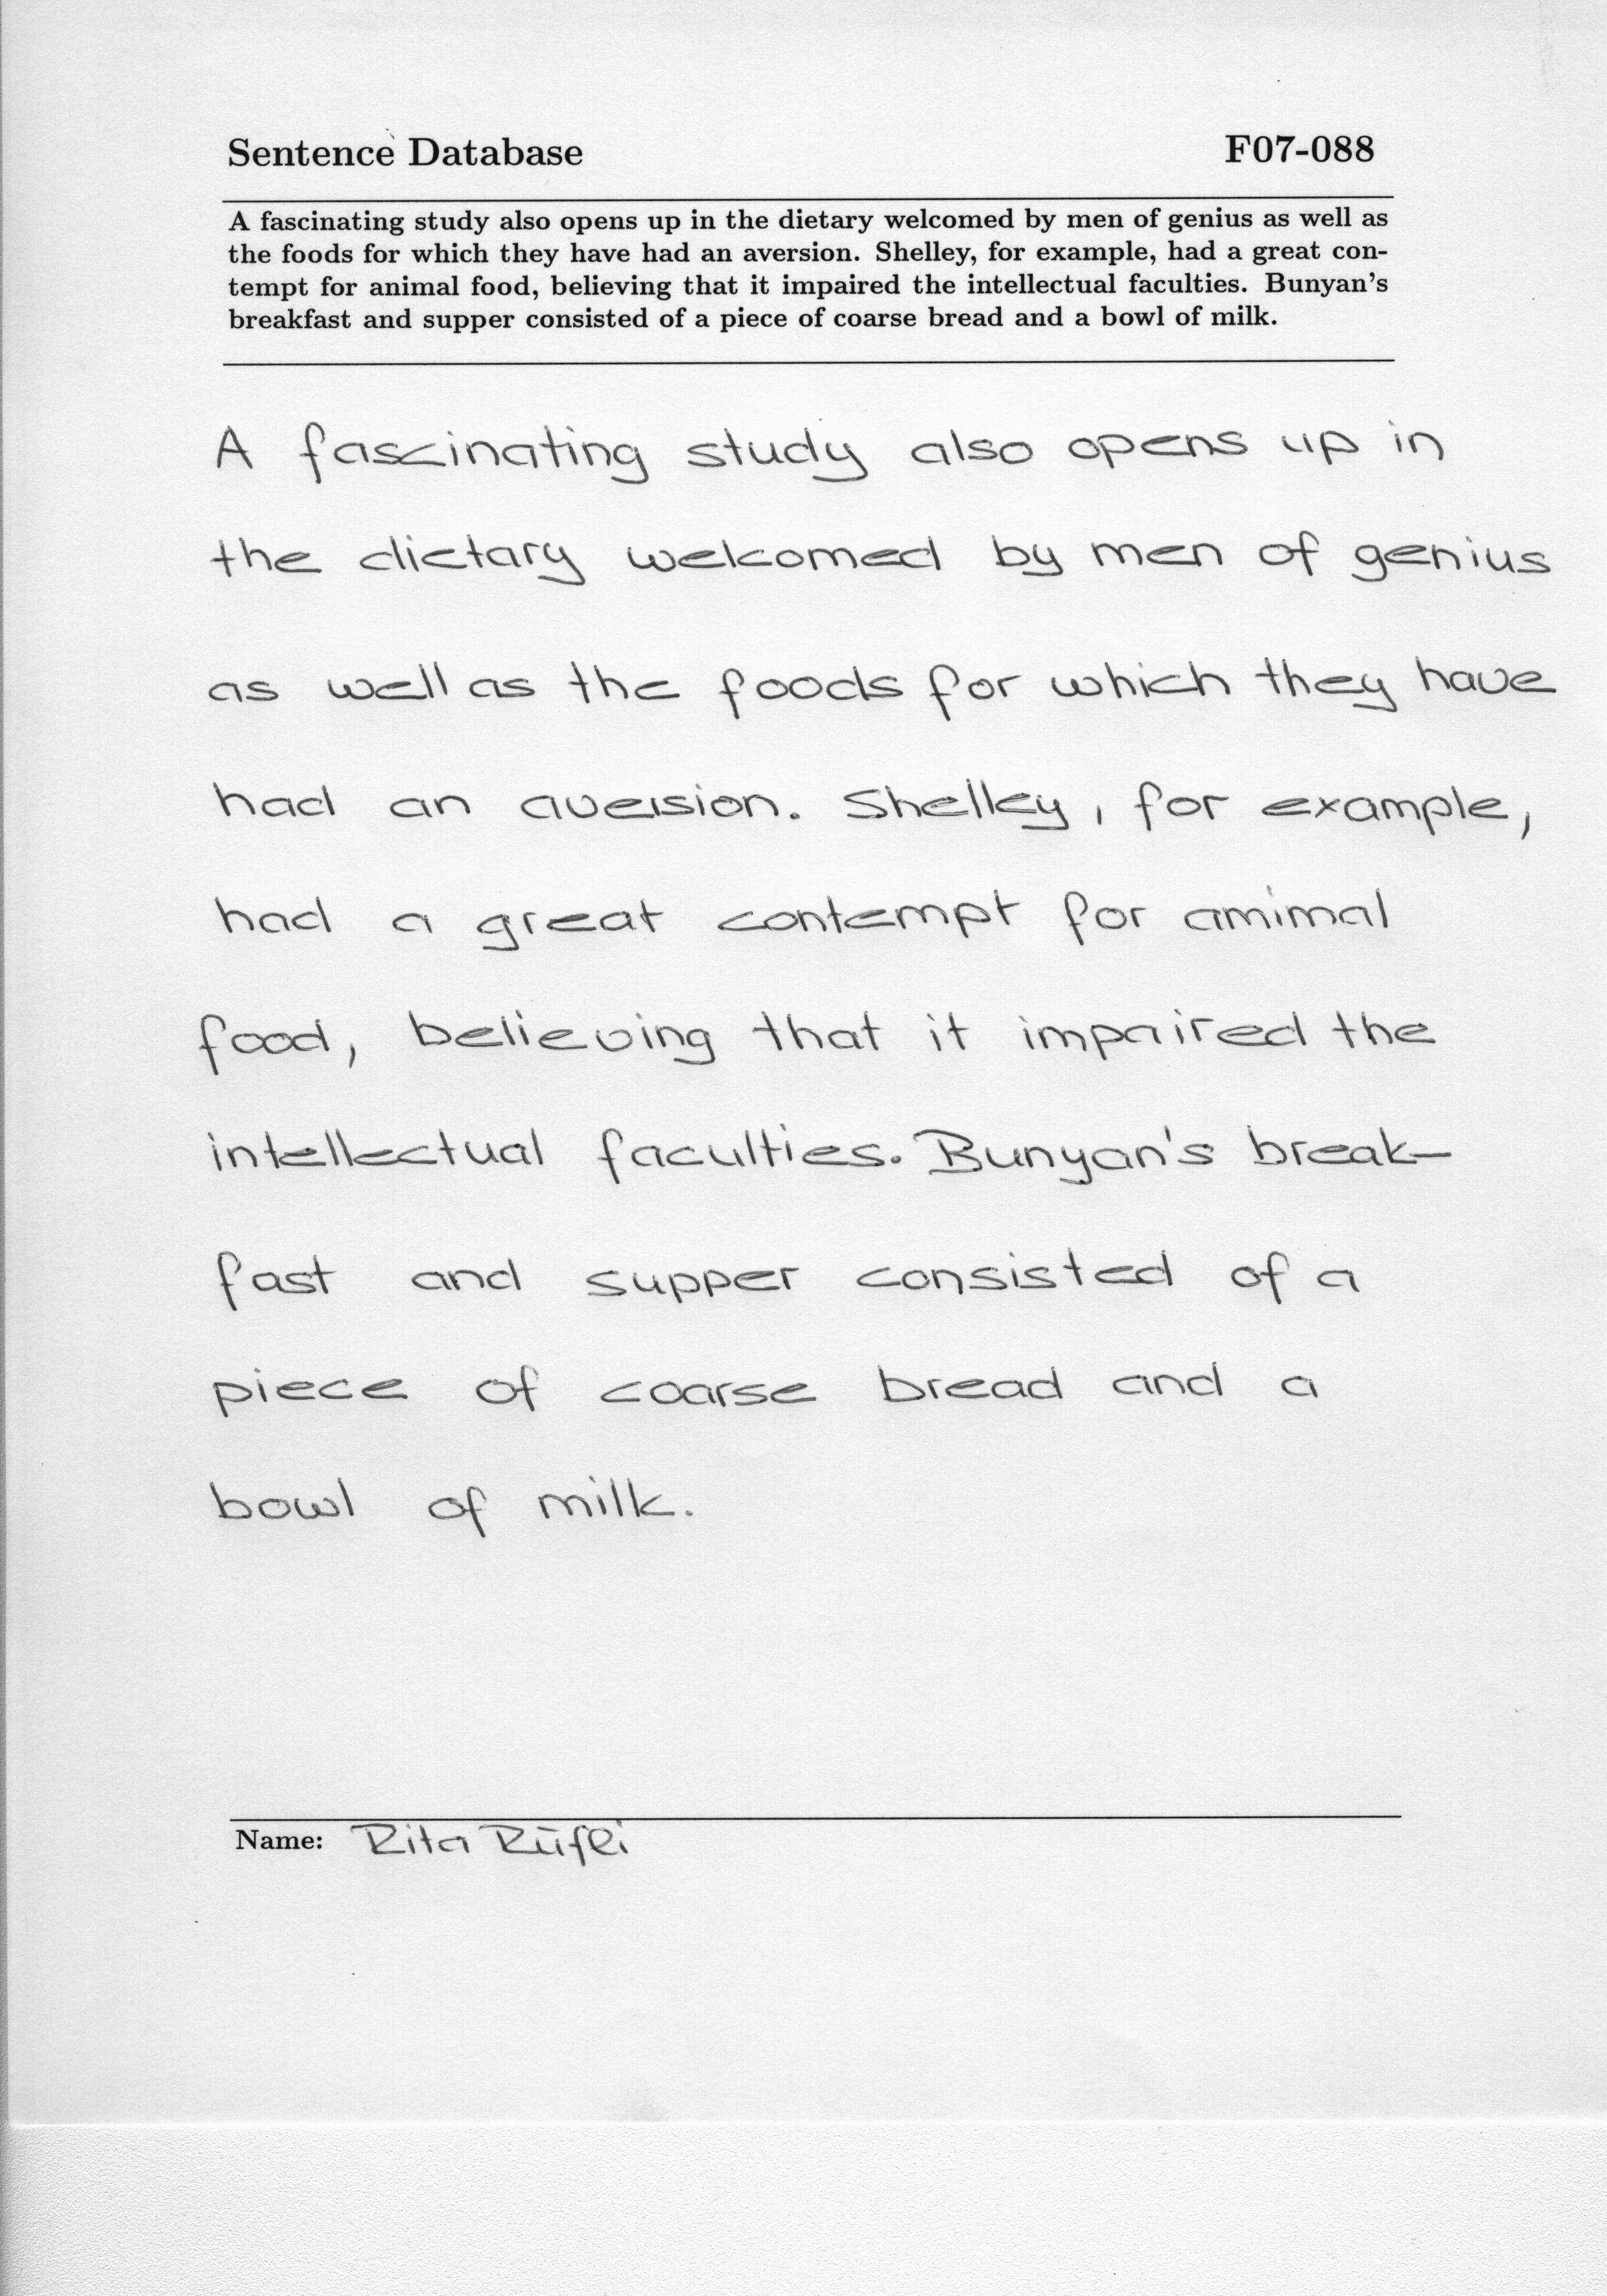 Sentence Database F07-088
A fascinating study also opens up in the dietary welcomed by men of genius as well as
the foods for which they have had an aversion. Shelley, for example, had a great con-
tempt for animal food, believing that it impaired the intellectual faculties. Bunyan's
breakfast and supper consisted of a piece of coarse bread and a bowl of milk.
A fascinating study also opens up in
the dietary welcomed by men of genius
as well as the foods for which they have
had an aversion. Shelley, for example,
had a great contempt for amimal
food, believing that it impaired the
intellectual faculties. Bunyan's break-
fast and supper consisted of a
piece of coarse bread and a
bowl of milk.
Name: Rita Rüfli